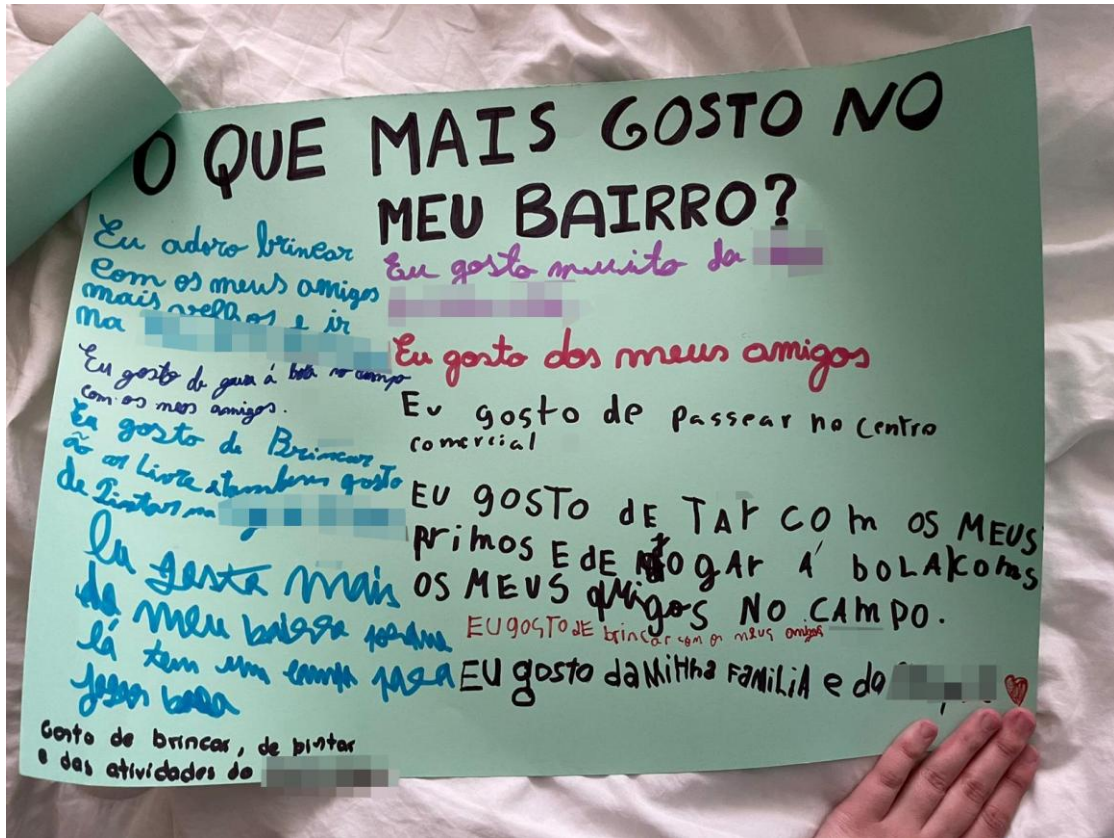 O QUE MAIS GOSTO NO
MEU BAIRRO?
Eu adoro brincar
com os meus amigos
mais velhos e ir
na
Eu gosto de à bola no campo
com os meos amigos.
Eu gosto de Brincar
ão ar Livre e tambem gosto
de Pintar na
Eu gosto mais
do meu bairro porque
lá tem um campo para
jogar bola
Gosto de brincar, de pintar
e das atividades do
Eu gosto muuito da
Eu gosto dos meus amigos
Eu gosto de passear no centro
comercial
EU gOSTO dE TAr COm OS MEUS
primos E dE jOgAr Á bOLA COm
OS MEUS amigos NO CAMPO.
EU gOSTO dE brincar com os meus amigos
EU gosto da Minha FAMiLiA e do